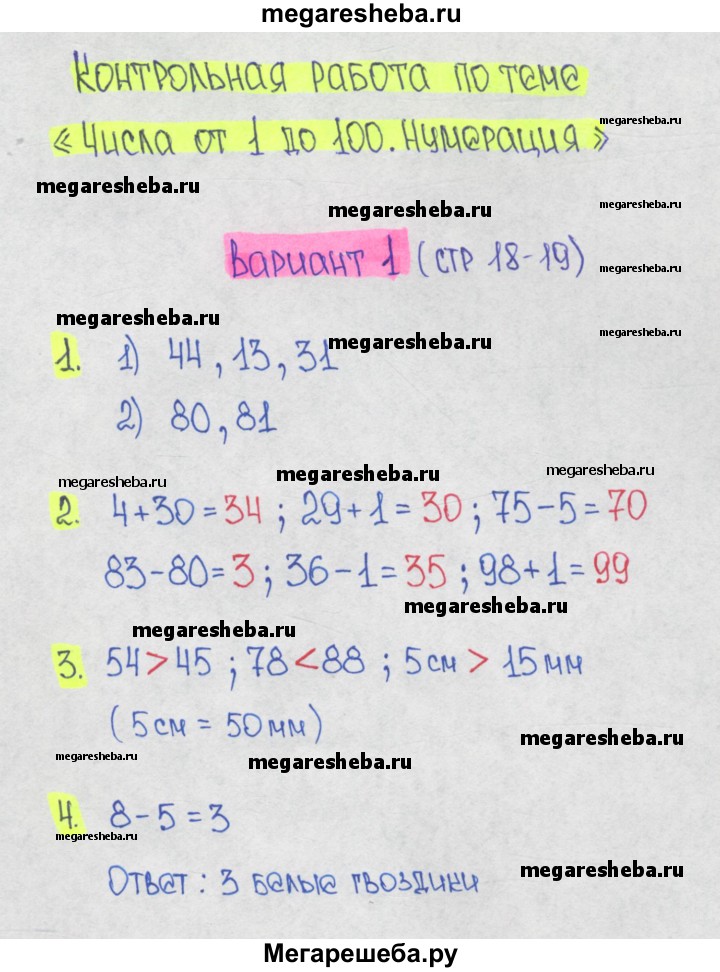 megaresheba.ru
Контрольная работа по теме
megaresheba.ru
« Числа от 1 до 100. Нумерация »
megaresheba.ru
megaresheba.ru
megaresheba.ru
Вариант 1 (стр 18-19)
megaresheba.ru
megaresheba.ru
megaresheba.ru
megaresheba.ru
1. 1) 44, 13, 31
2) 80, 81
megaresheba.ru
megaresheba.ru
megaresheba.ru
2. 4+30=34 ; 29+1=30 ; 75-5=70
83-80=3 ; 36-1=35 ; 98+1=99
megaresheba.ru
megaresheba.ru
3. 54>45 ; 78<88 ; 5 см > 15 мм
(5 см = 50 мм)
megaresheba.ru
megaresheba.ru
megaresheba.ru
4. 8-5=3
megaresheba.ru
megaresheba.ru
Ответ : 3 белые гвоздики
Мегарешеба.ру